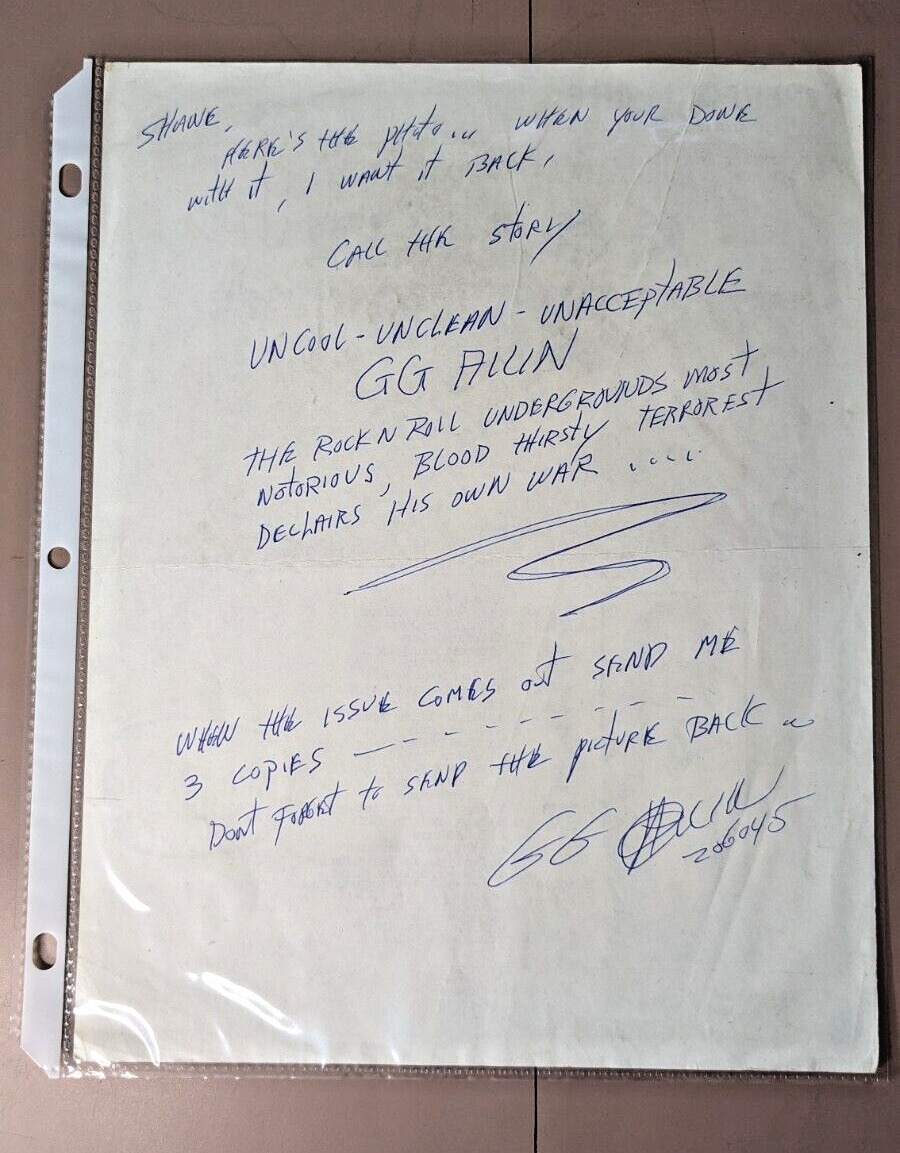 SHANE,
HERE'S THE PHOTO... WHEN YOUR DONE
WITH IT, I WANT IT BACK,
CALL THE STORY
UNCOOL - UNCLEAN - UNACCEPTABLE
GG ALLIN
THE ROCK N ROLL UNDERGROUNDS MOST
NOTORIOUS, BLOOD THIRSTY TERROREST
DECLAIRS HIS OWN WAR ....
WHEN THE ISSUE COMES OUT SEND ME
3 COPIES — - - - - - - -
DONT FORGET TO SEND THE PICTURE BACK ..
GG ALLIN
206045